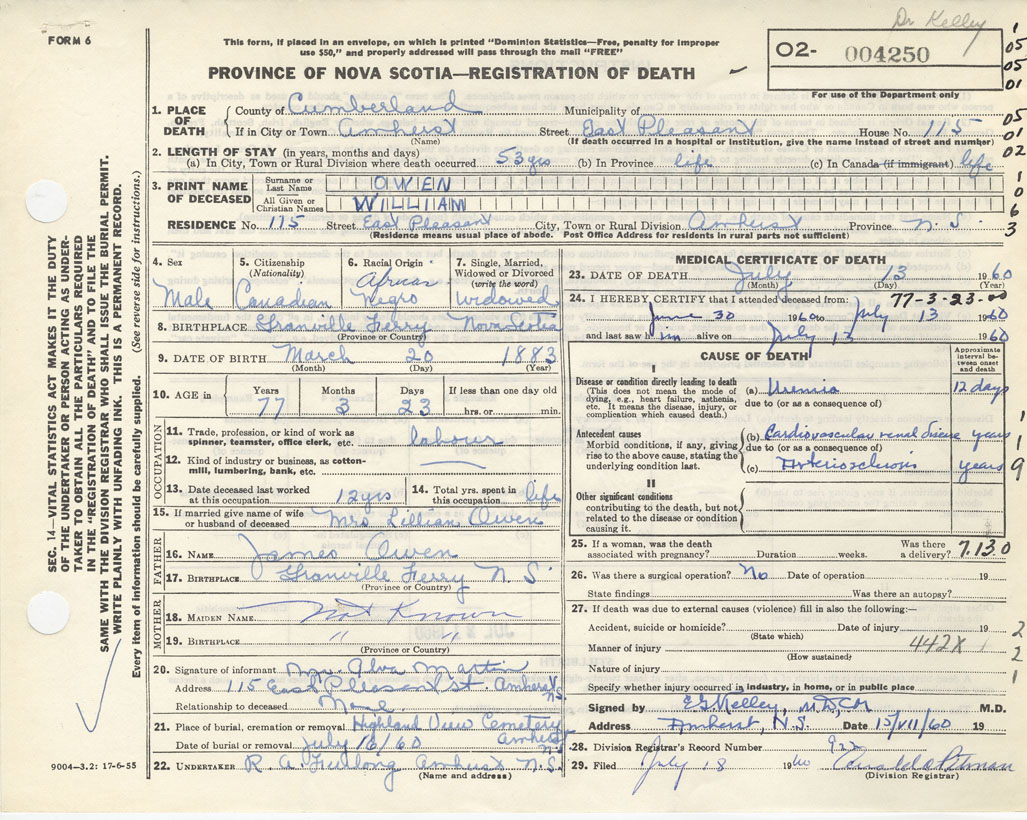 Dr Kelley
FORM 6
This form, if placed in an envelope, on which is printed "Dominion Statistics—Free, penalty for improper
use $50," and properly addressed will pass through the mail "FREE"
O2- 004250
For use of the Department only
PROVINCE OF NOVA SCOTIA—REGISTRATION OF DEATH
1
05
05
01
05
01
02
1
0
6
3
1. PLACE OF DEATH
County of Cumberland Municipality of
If in City or Town Amherst Street East Pleasant House No. 115
(Name) (If death occurred in a hospital or institution, give the name instead of street and number)
2. LENGTH OF STAY (in years, months and days)
(a) In City, Town or Rural Division where death occurred 53 yrs (b) In Province life (c) In Canada (if immigrant) life
3. PRINT NAME OF DECEASED
Surname or Last Name OWEN
All Given or Christian Names WILLIAM
RESIDENCE No. 115 Street East Pleasant City, Town or Rural Division Amherst Province N.S.
(Residence means usual place of abode. Post Office Address for residents in rural parts not sufficient)
SEC. 14—VITAL STATISTICS ACT MAKES IT THE DUTY
OF THE UNDERTAKER OR PERSON ACTING AS UNDER-
TAKER TO OBTAIN ALL THE PARTICULARS REQUIRED
IN THE "REGISTRATION OF DEATH" AND TO FILE THE
SAME WITH THE DIVISION REGISTRAR WHO SHALL ISSUE THE BURIAL PERMIT.
WRITE PLAINLY WITH UNFADING INK. THIS IS A PERMANENT RECORD.
Every item of information should be carefully supplied. (See reverse side for instructions.)
4. Sex
Male
5. Citizenship
(Nationality)
Canadian
6. Racial Origin
African
Negro
7. Single, Married,
Widowed or Divorced
(write the word)
widowed
8. BIRTHPLACE Granville Ferry Nova Scotia
(Province or Country)
9. DATE OF BIRTH March 20 1883
(Month) (Day) (Year)
10. AGE in
Years Months Days If less than one day old
77 3 23 hrs. or min.
OCCUPATION
11. Trade, profession, or kind of work as
spinner, teamster, office clerk, etc. labour
12. Kind of industry or business, as cotton-
mill, lumbering, bank, etc.
13. Date deceased last worked
at this occupation 12 yrs
14. Total yrs. spent in
this occupation life
15. If married give name of wife
or husband of deceased Mrs Lillian Owen
FATHER
16. NAME James Owen
17. BIRTHPLACE Granville Ferry N.S.
(Province or Country)
MOTHER
18. MAIDEN NAME Not Known
19. BIRTHPLACE " "
(Province or Country)
20. Signature of informant Mrs. Alva Martin
Address 115 East Pleasant St. Amherst N.S.
Relationship to deceased None
21. Place of burial, cremation or removal Highland View Cemetery
Amherst N.S.
Date of burial or removal July 16/60
22. UNDERTAKER R. A. Furlong Amherst N.S.
(Name and address)
9004—3.2: 17-6-55
MEDICAL CERTIFICATE OF DEATH
23. DATE OF DEATH July 13 1960
(Month) (Day) (Year)
24. I HEREBY CERTIFY that I attended deceased from: 77-3-23-00
June 30 1960 to July 13 1960
and last saw him alive on July 13 1960
CAUSE OF DEATH
Approximate
interval be-
tween onset
and death
I
Disease or condition directly leading to death
(This does not mean the mode of
dying, e.g., heart failure, asthenia,
etc. It means the disease, injury, or
complication which caused death.)
(a) Uremia 12 days
due to (or as a consequence of)
Antecedent causes
Morbid conditions, if any, giving
rise to the above cause, stating the
underlying condition last.
(b) Cardiovascular renal disease years
due to (or as a consequence of)
(c) Arteriosclerosis years
1
1
9
II
Other significant conditions
contributing to the death, but not
related to the disease or condition
causing it.
25. If a woman, was the death
associated with pregnancy? Duration weeks. Was there
a delivery? 7.13 0
26. Was there a surgical operation? No Date of operation 19
State findings Was there an autopsy?
27. If death was due to external causes (violence) fill in also the following:—
Accident, suicide or homicide? Date of injury 19
(State which)
Manner of injury 442X
(How sustained)
Nature of injury
2
2
1
Specify whether injury occurred in industry, in home, or in public place
Signed by E G Kelley, MDCM M.D.
Address Amherst, N.S. Date 15/VII/60 19
28. Division Registrar's Record Number
29. Filed July 18 1960
(Division Registrar)